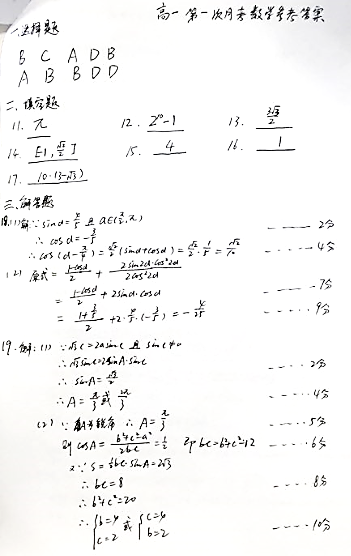 高一第一次月考数学参考答案
一.选择题
B C A D B
A B B D D
二.填空题
11. π 12. 2^n-1 13. 3√3/2
14. [-1, √2/2] 15. 4 16. 1
17. 10·(3-√3)
三.解答题
18.(1)解:∵sinα=4/5 且 α∈(π/2,π)
∴cosα=-3/5 ---- 2分
∴cos(α-π/4)=√2/2(sinα+cosα)=√2/2·1/5=√2/10 ---- 4分
(2) 原式=(1-cosα)/2 + (2sin2α·cos²α)/(2cos²α)
=(1-cosα)/2+2sinα·cosα ---- 7分
=(1+3/5)/2+2·4/5·(-3/5)=-4/25 ---- 9分
19.解:(1) ∵√3c=2asinC 且 sinC≠0
∴√3sinC=2sinA·sinC ---- 2分
∴sinA=√3/2
∴A=π/3或2π/3 ---- 4分
(2) ∵ ∴A=π/3 ---- 5分
则cosA=(b²+c²-a²)/2bc=1/2 即bc=b²+c²-12 ---- 6分
又∵S=1/2bc·sinA=2√3
∴bc=8 ---- 8分
∴b²+c²=20
∴{b=4 或 {c=4
c=2 b=2 ---- 10分